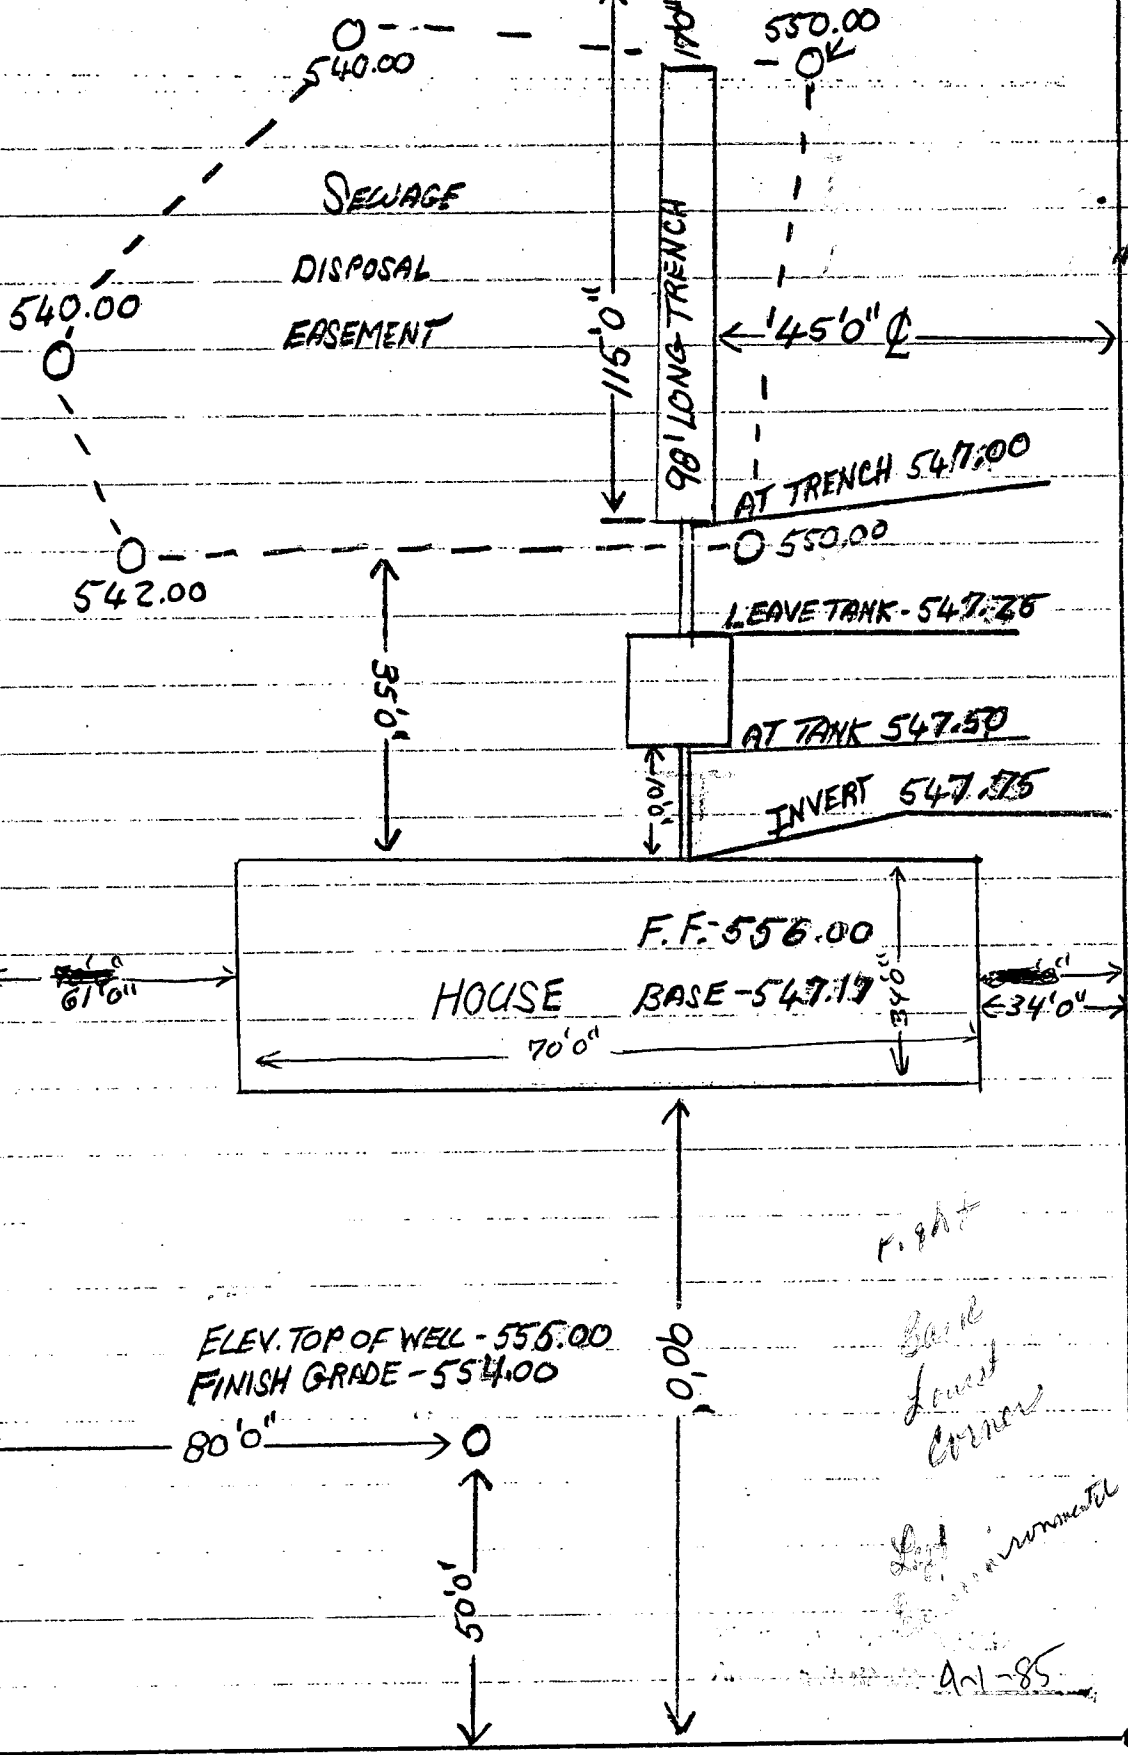 17'0"
550.00
540.00
SEWAGE
DISPOSAL
EASEMENT
540.00
115'0"
98' LONG TRENCH
45'0" ℄
AT TRENCH 547.00
550.00
542.00
LEAVE TANK - 547.25
35'0"
AT TANK 547.50
10'0"
INVERT 547.75
F.F. - 556.00
61'0"
HOUSE BASE - 547.17
34'0"
34'0"
70'0"
Right
ELEV. TOP OF WELL - 555.00
FINISH GRADE - 554.00
90'0"
Lowest
Corner
80'0"
50'0"